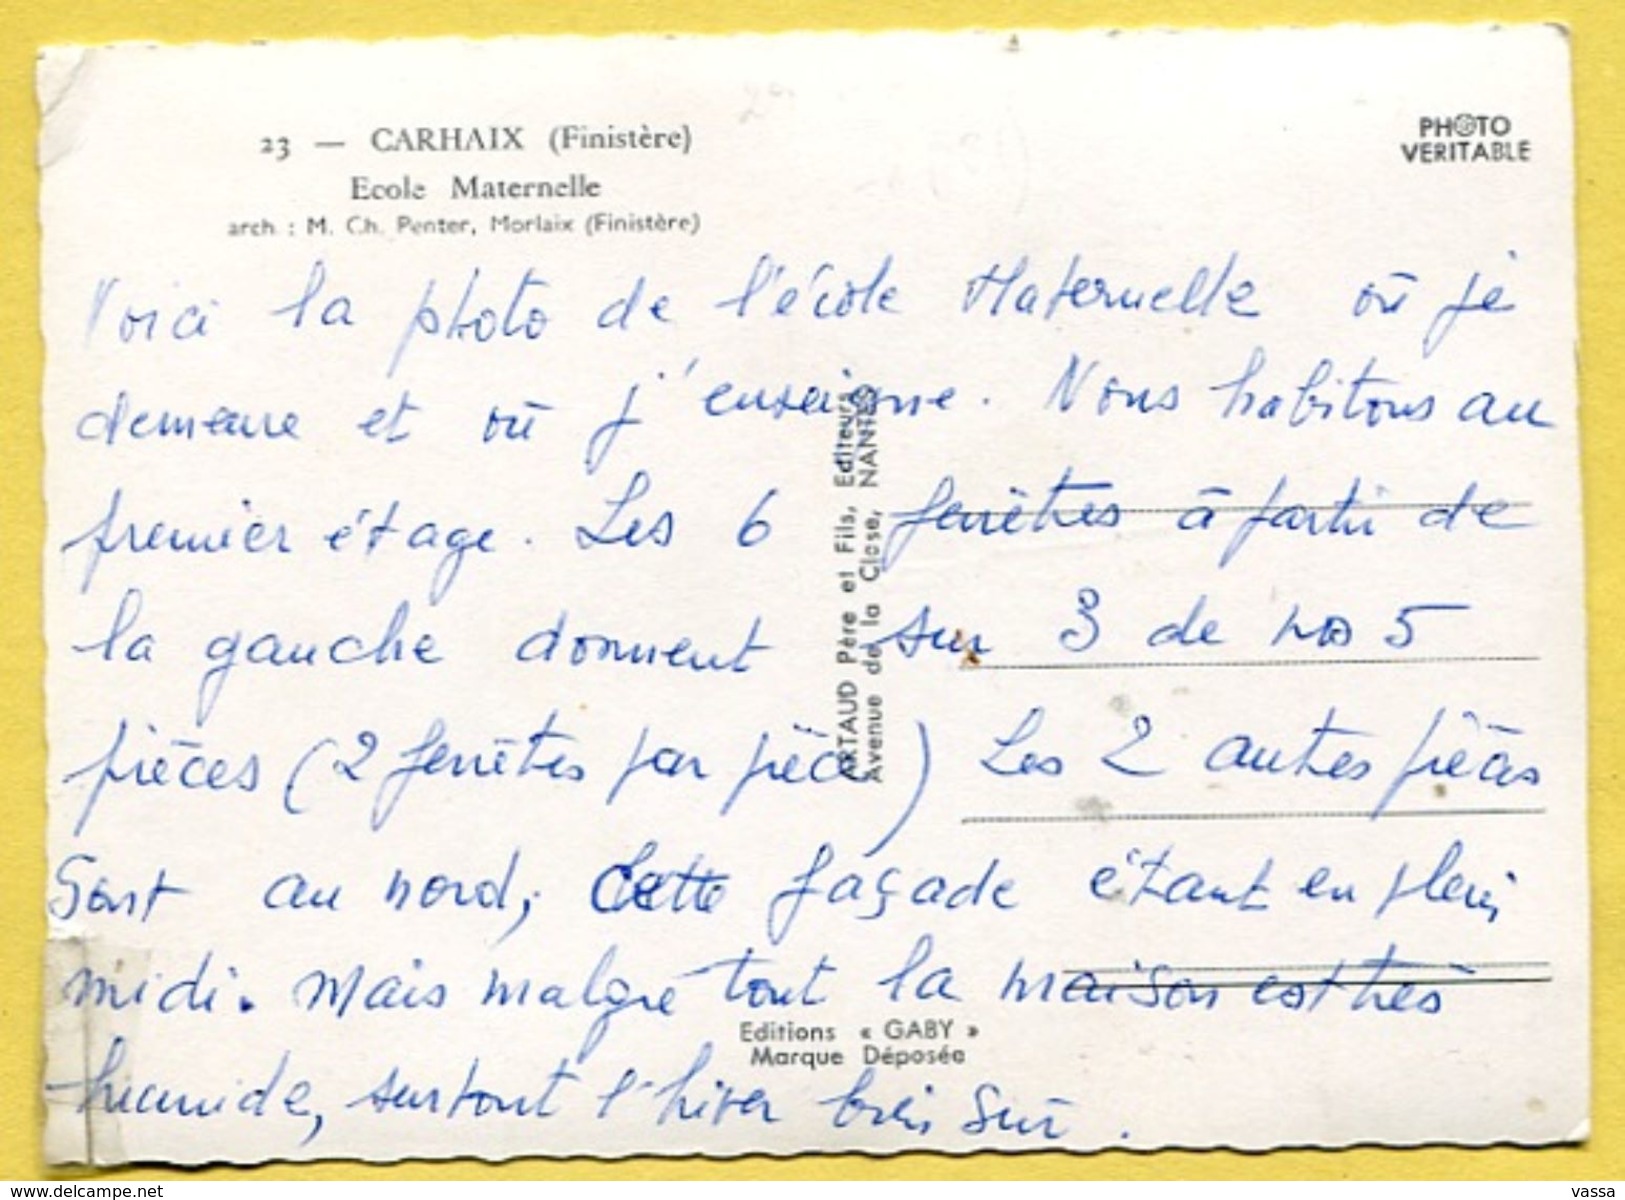 23 — CARHAIX (Finistère)
Ecole Maternelle
arch : M. Ch. Penter, Morlaix (Finistère)
PHOTO
VERITABLE
Voici la photo de l'école Maternelle où je
demeure et où j'enseigne. Nous habitons au
premier étage. Les 6 fenêtres à partir de
la gauche donnent sur 3 de nos 5
pièces (2 fenêtres par pièce) Les 2 autres pièces
sont au nord, Cette façade étant en plein
midi. Mais malgré tout la maison est très
humide, surtout l'hiver bien sûr.
ARTAUD Père et Fils, Editeurs
Avenue de la Close, NANTES
Editions « GABY »
Marque Déposée
delcampe.net
vassa